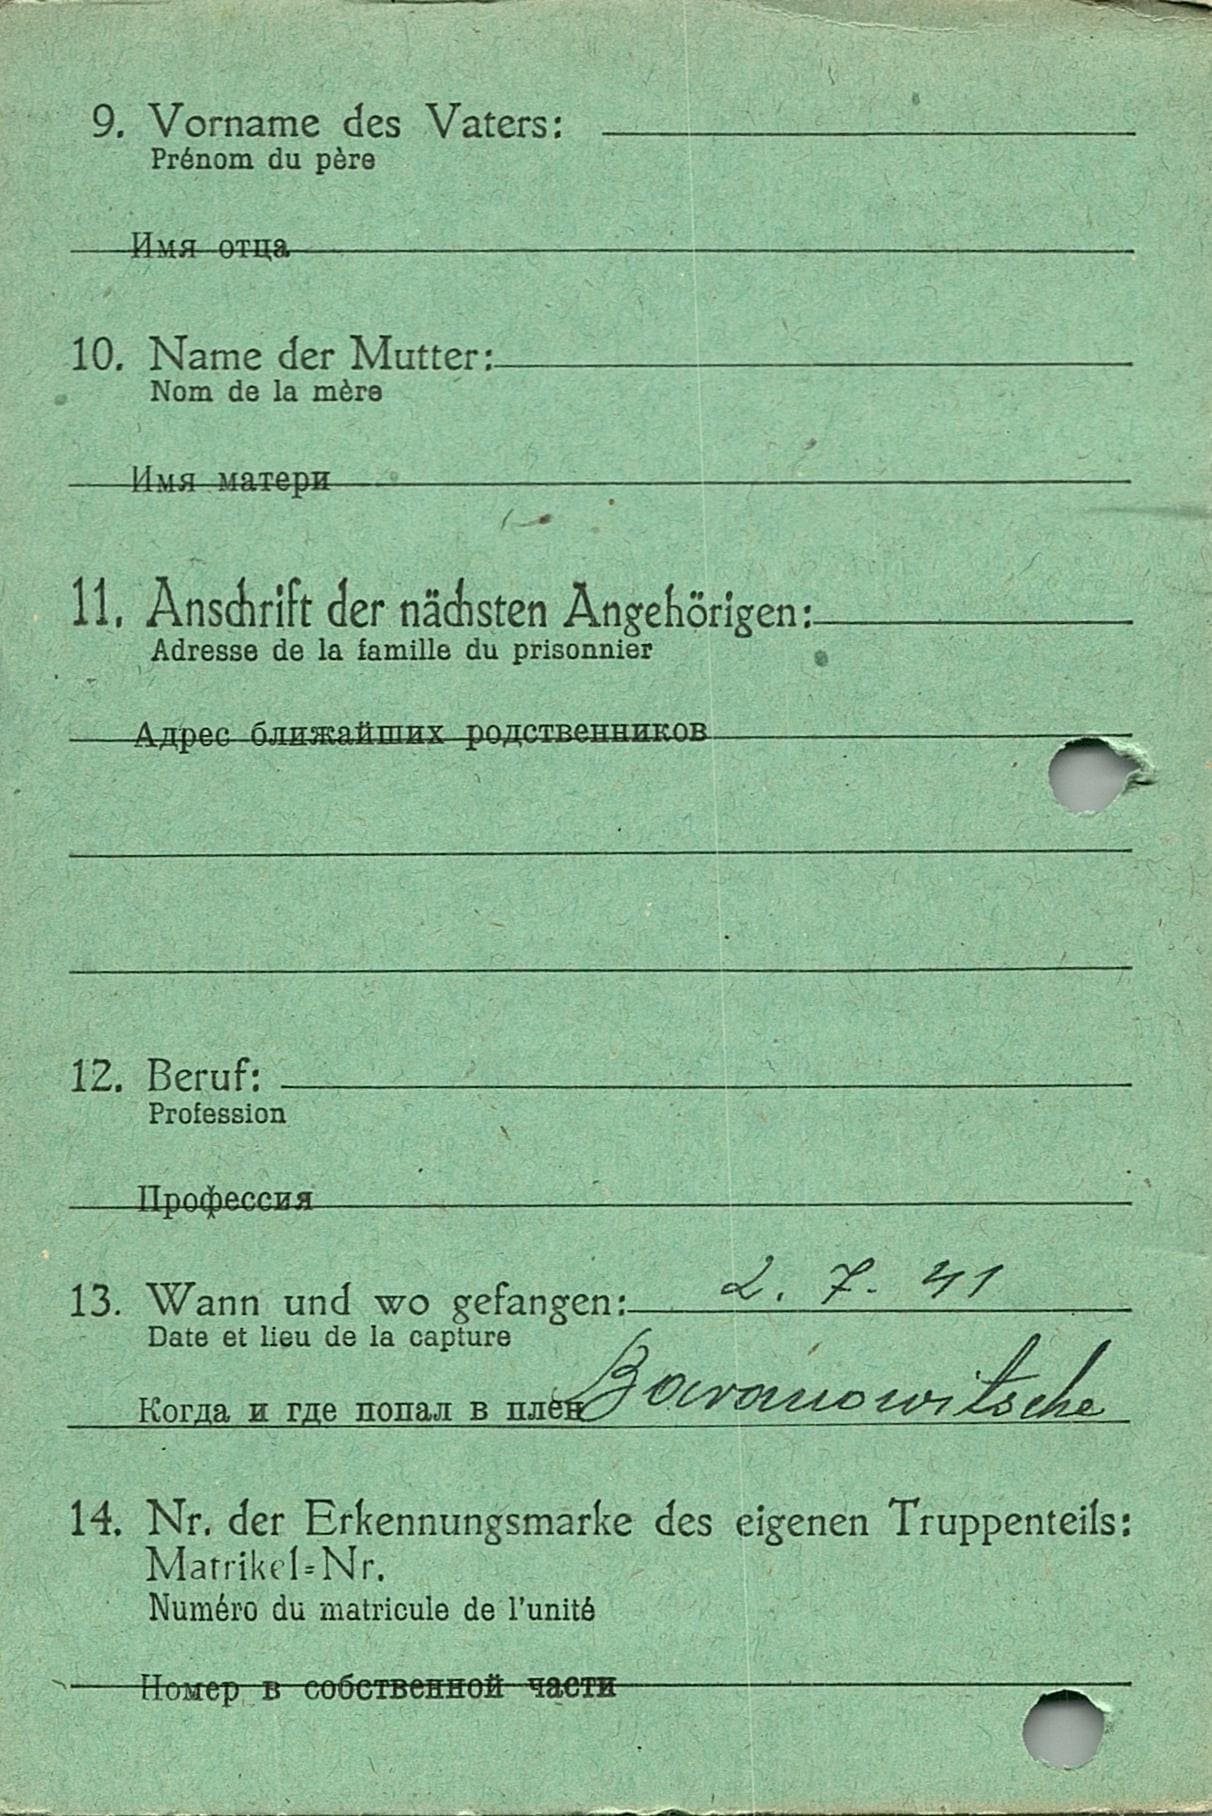 9. Vorname des Vaters:
Prénom du père
Имя отца
10. Name der Mutter:
Nom de la mère
Имя матери
11. Anschrift der nächsten Angehörigen:
Adresse de la famille du prisonnier
Адрес ближайших родственников
12. Beruf:
Profession
Профессия
13. Wann und wo gefangen: 2. 7. 41
Date et lieu de la capture
Когда и где попал в плен Baranowitsche
14. Nr. der Erkennungsmarke des eigenen Truppenteils:
Matrikel=Nr.
Numéro du matricule de l'unité
Номер в собственной части